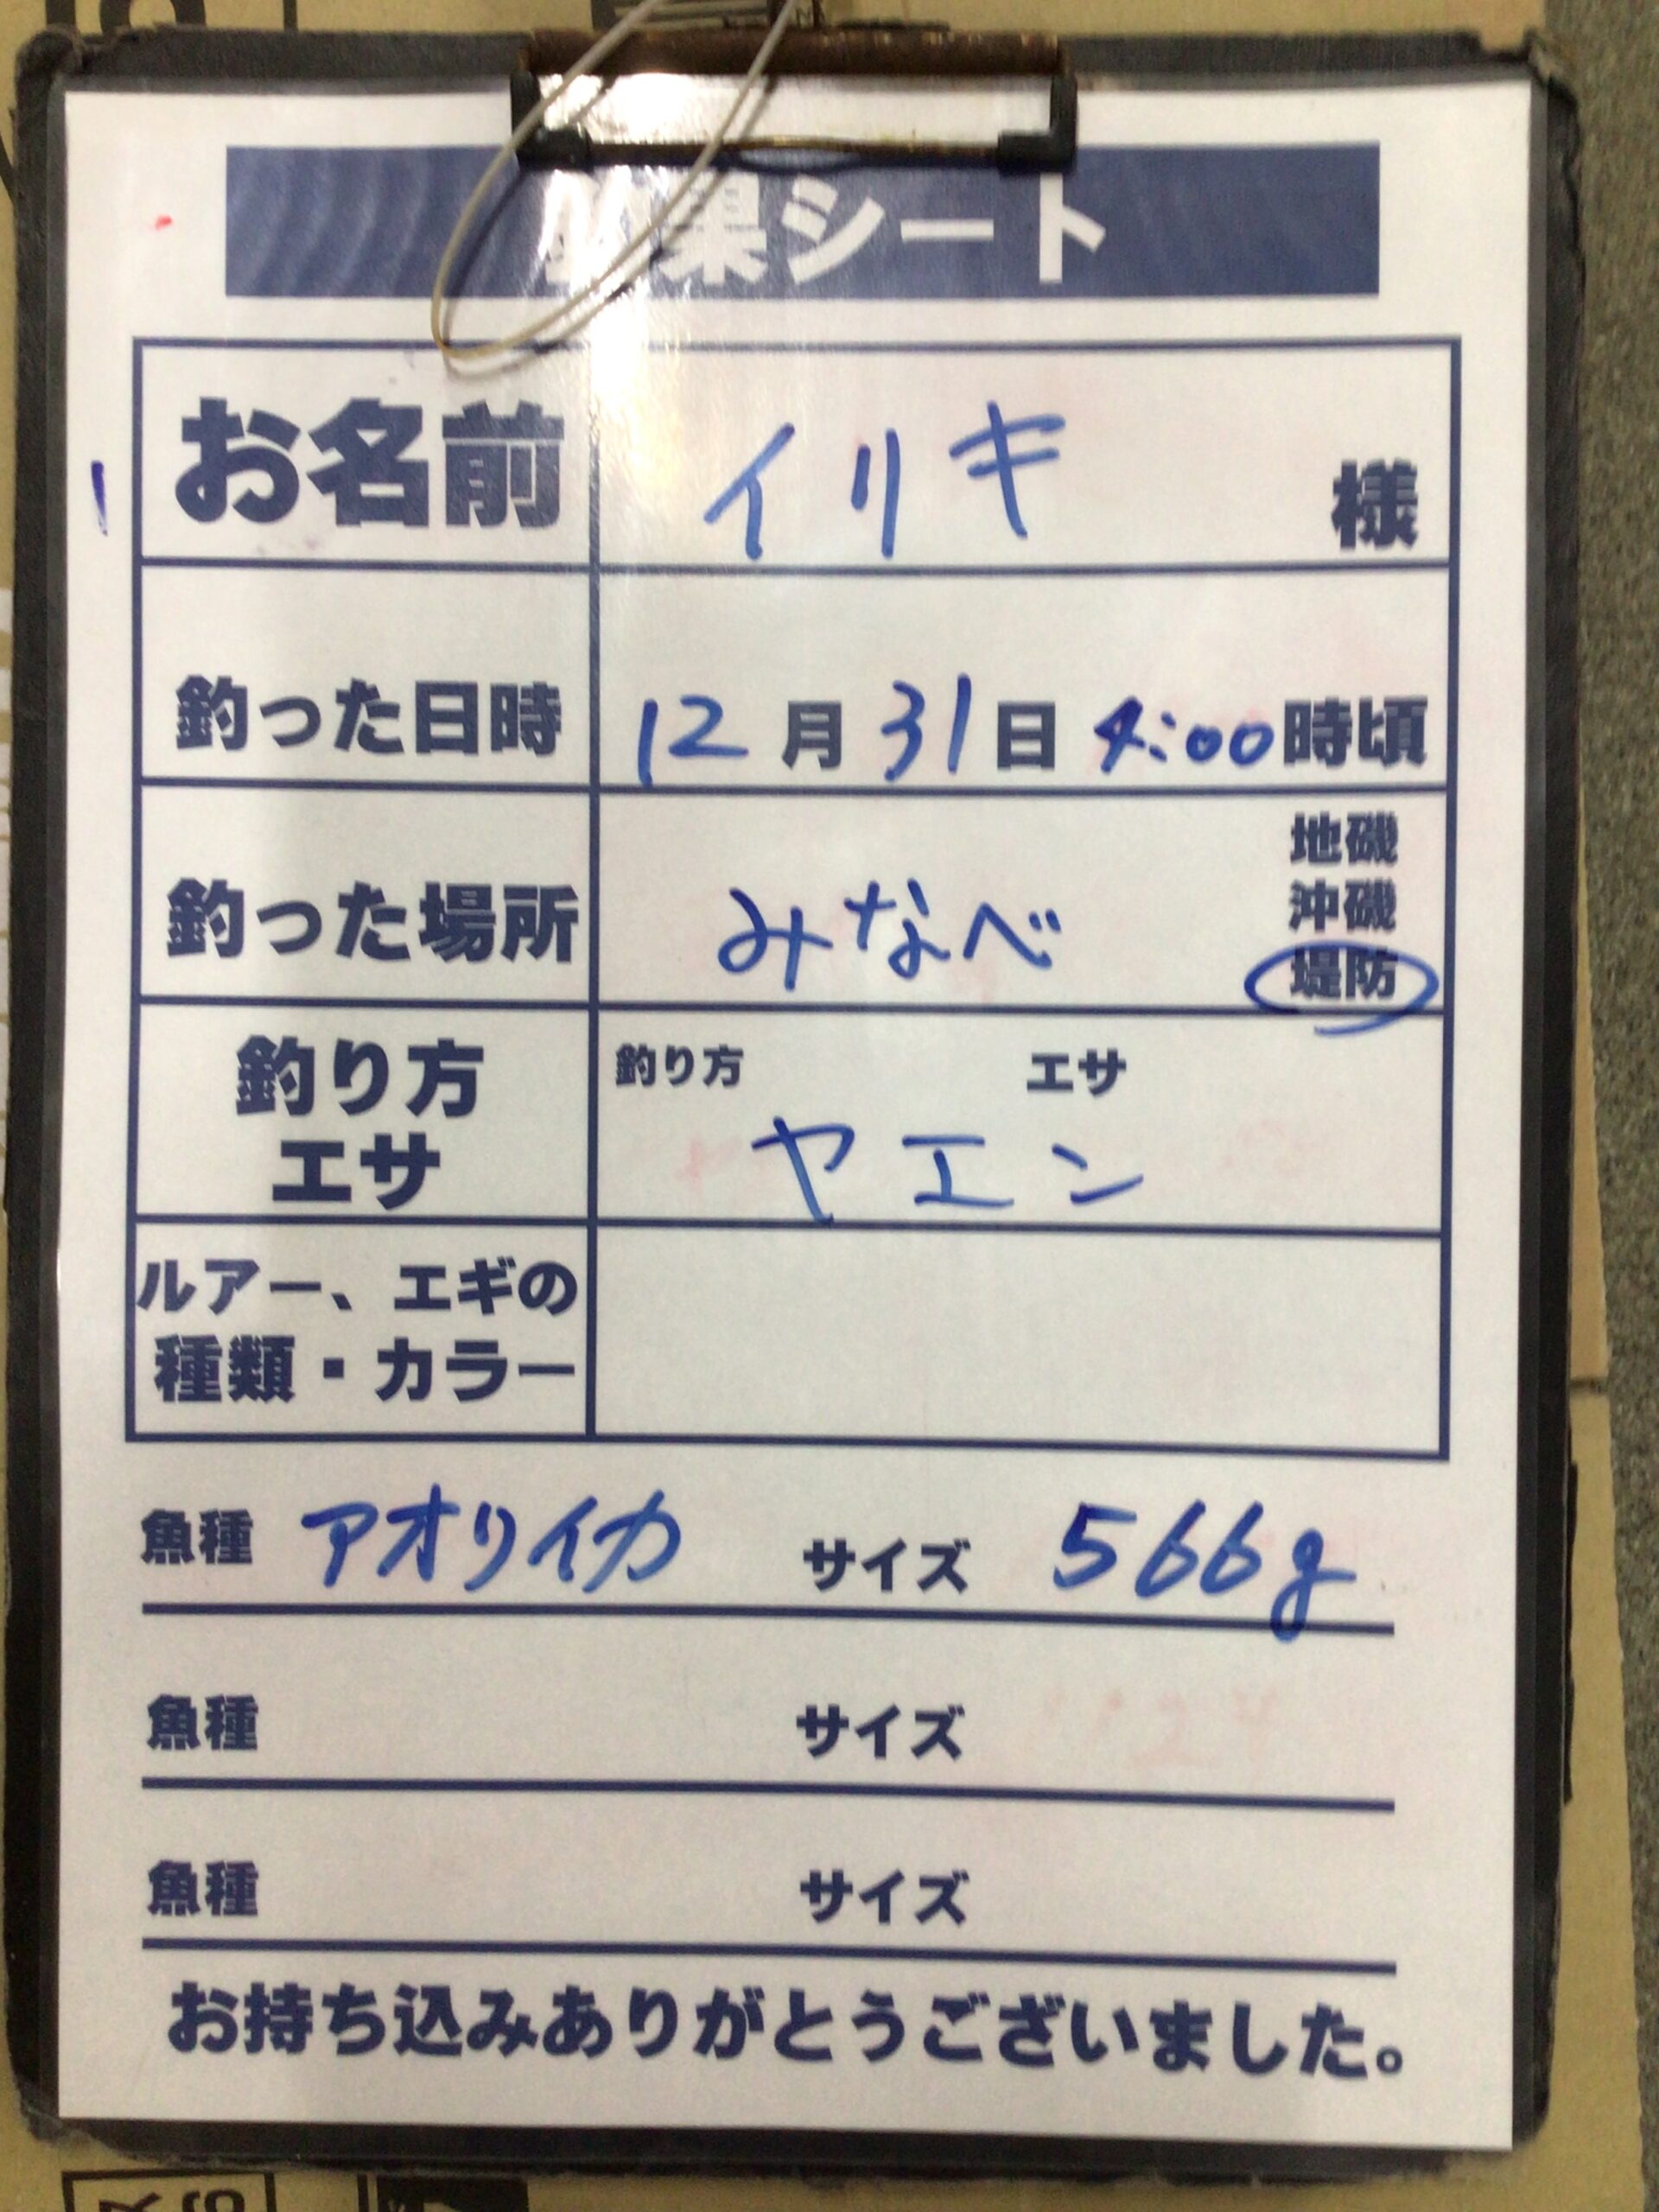 果シート
お名前 イリキ 様
釣った日時 12月31日 4:00時頃
釣った場所 みなべ 地磯
沖磯
堤防
釣り方 釣り方 エサ
エサ ヤエン
ルアー、エギの
種類・カラー
魚種 アオリイカ サイズ 566g
魚種 サイズ
魚種 サイズ
お持ち込みありがとうございました。